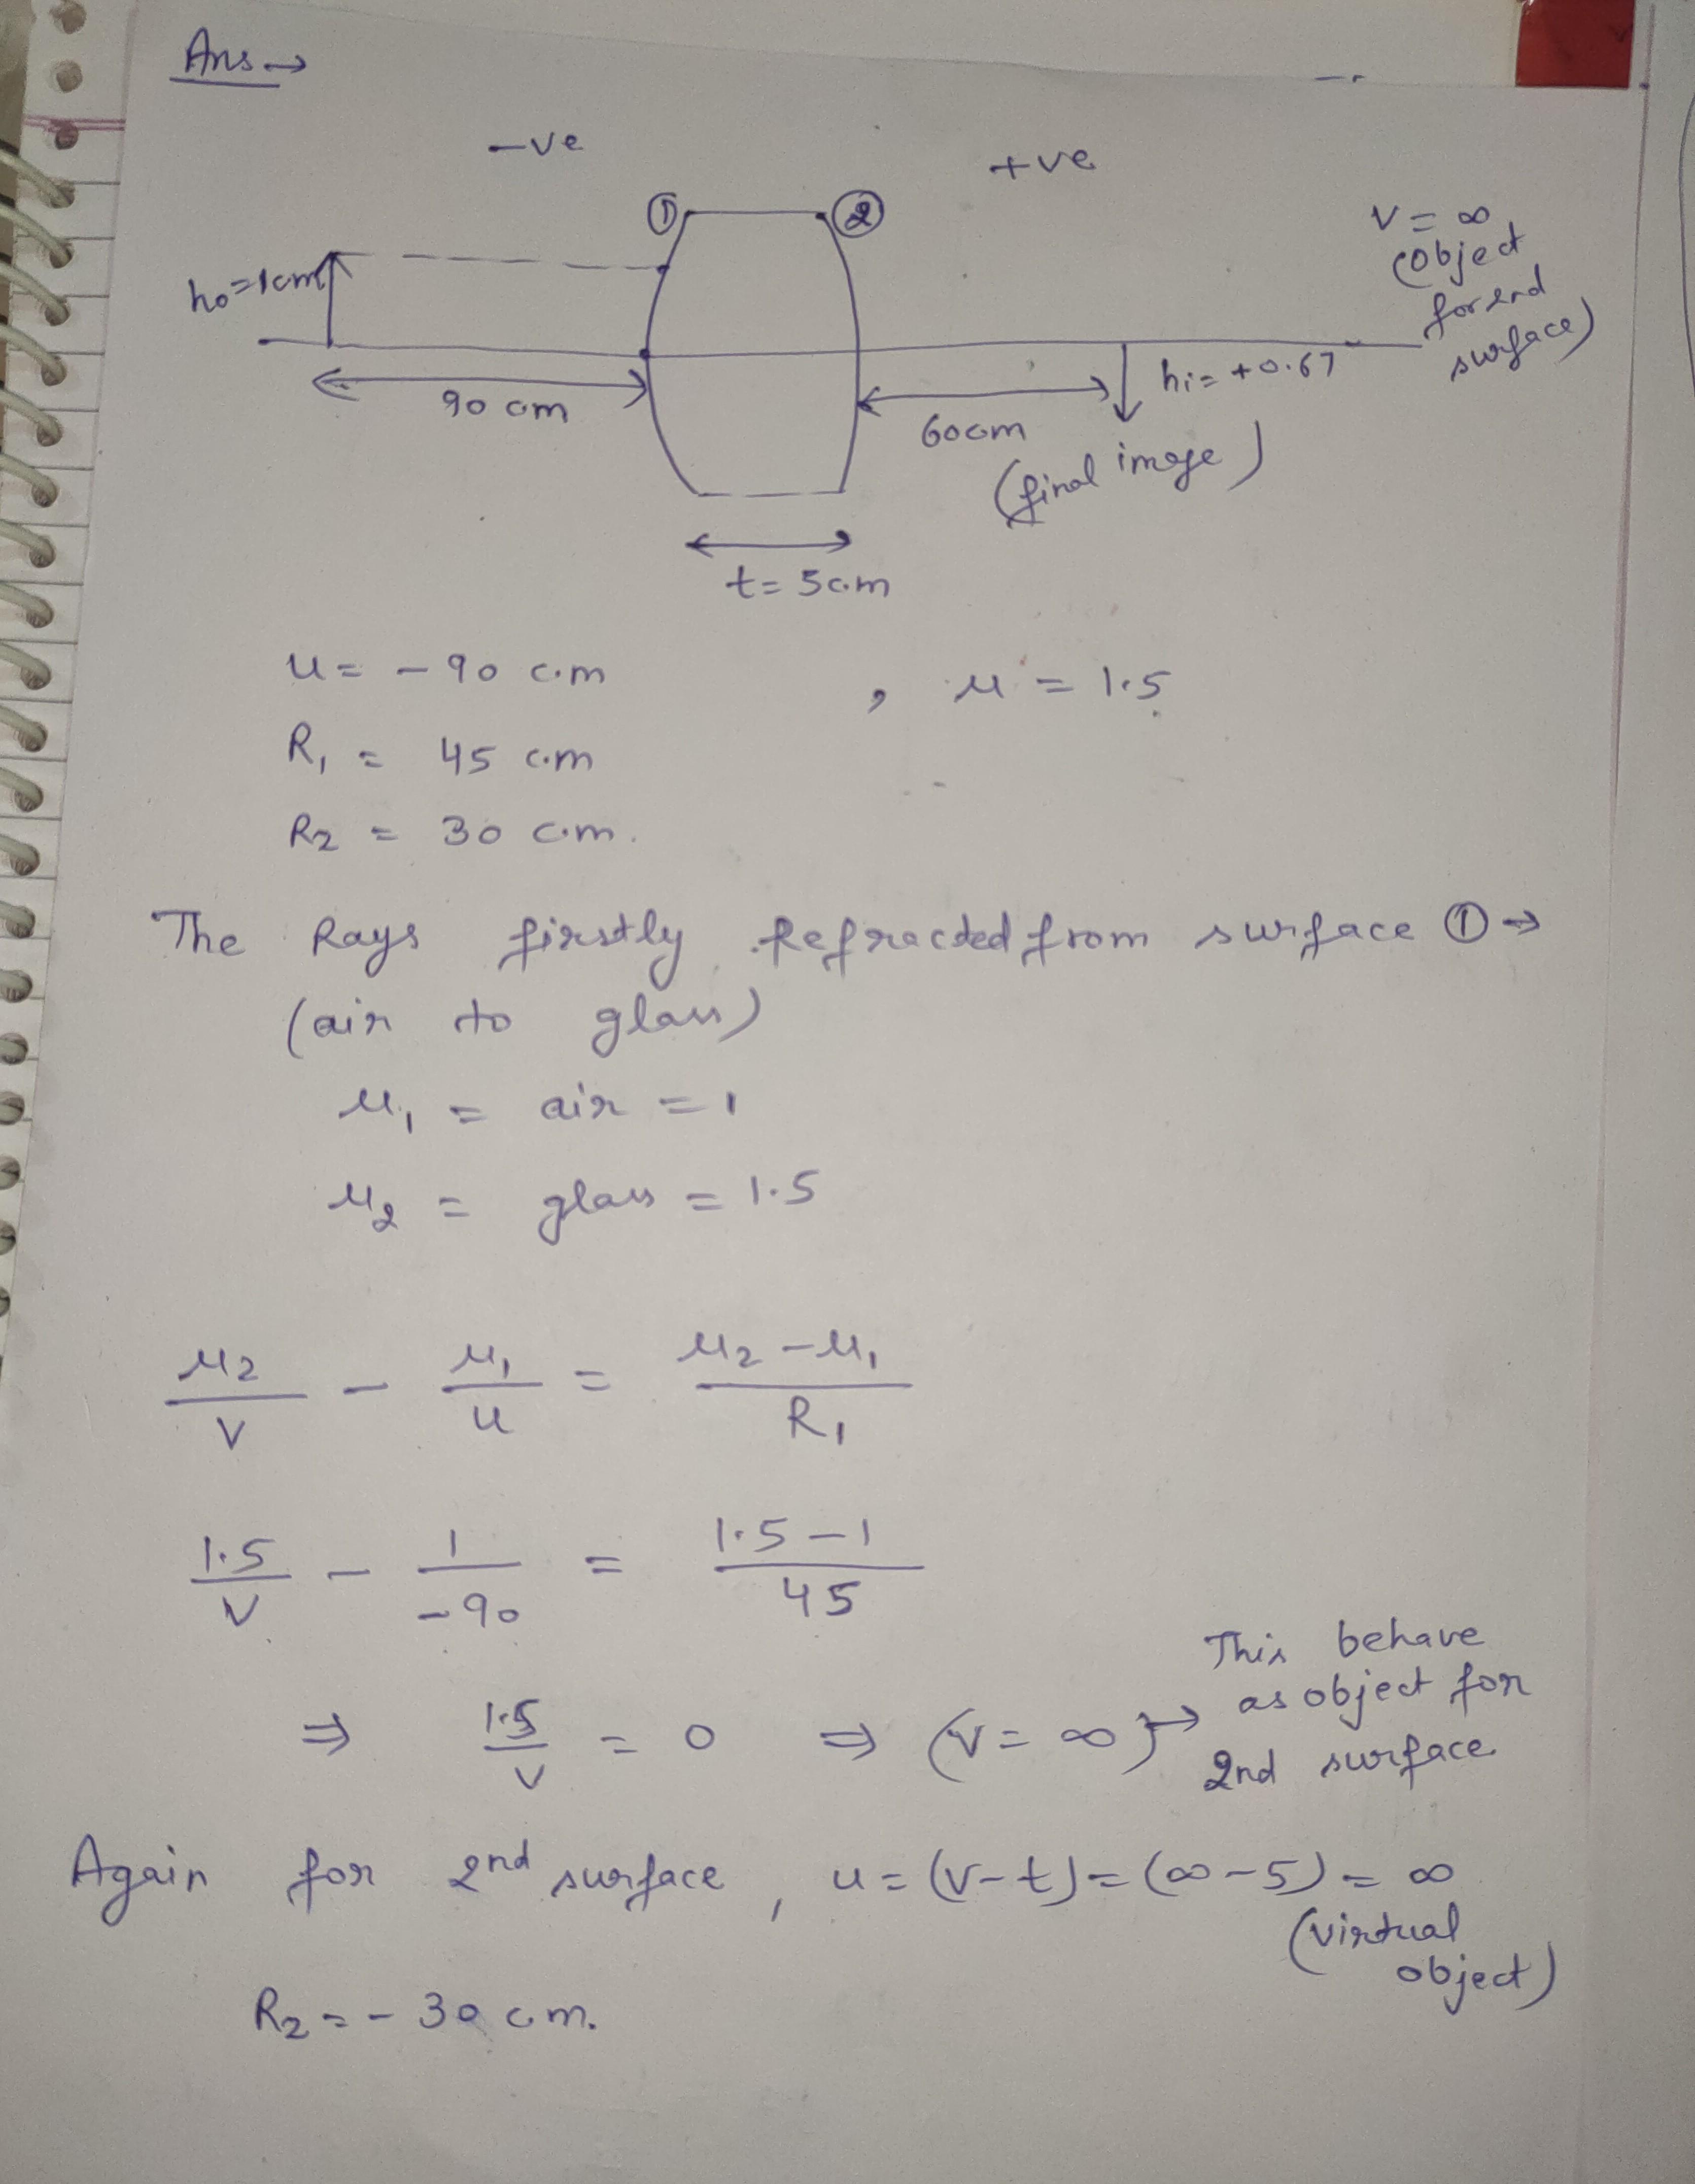 Ans →
-ve
+ve
① ②
v = ∞
(object
for 2nd
surface)
ho=1cm
hi= +0.67
90 cm
60cm
(final image)
t= 5cm
u= -90 cm , μ = 1.5
R₁ = 45 cm
R₂ = 30 cm.
The Rays firstly Refracted from surface ① →
(air to glass)
μ₁ = air = 1
μ₂ = glass = 1.5
μ₂/v - μ₁/u = μ₂-μ₁/R₁
1.5/v - 1/-90 = 1.5-1/45
⇒ 1.5/v = 0 ⇒ (v = ∞) → This behave
as object for
2nd surface
Again for 2nd surface, u = (v-t) = (∞-5) = ∞
(virtual
object)
R₂ = -30 cm.